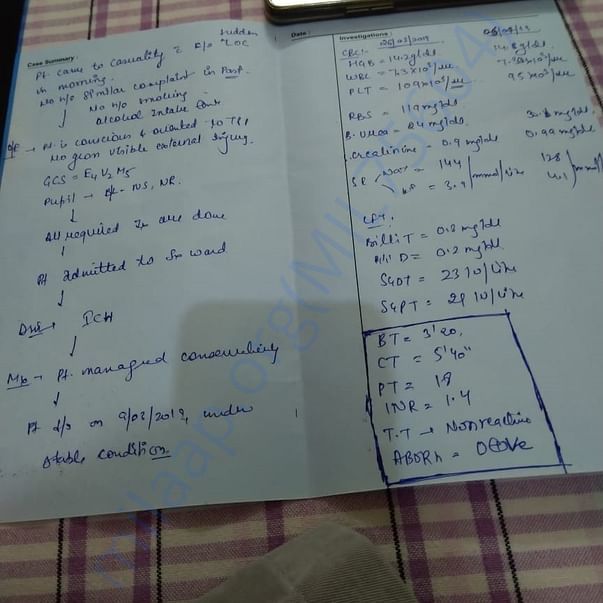 Case Summary :
Pt. came to casuality c̄ H/o sudden LOC
in morning.
No h/o similar complaint in Past.
↓ No h/o smoking
Alcohol Intake
O/E → Pt is conscious & oriented to TPP
No gross visible external injury.
GCS = E4 V2 M5
Pupil → B/L - NS, NR.
↓
All required Ix are done
↓
Pt admitted to Sx ward
↓
ICH
↓
Mx → Pt. managed conservatively
↓
Pt d/s on 9/03/2019, under
stable condition.
Date :
Investigations :
CBC :- 06/03/2019
HGB = 14.2 g/dl
WBC = 7.3 × 10³/uc
PLT = 109 × 10³/uc 95 × 10³/uc
RBS = 119 mg/dl
B. Urea = 24 mg/dl
S. creatinine 0.9 mg/dl 0.99 mg/dl
Sr. Na+ = 144 128
K+ = 3.9 mmol/litre 4.1 mmol/
LFT.
Billi T = 0.8 mg/dl
Billi D = 0.2 mg/dl
SGOT = 23 IU/Litre
SGPT = 29 IU/Litre
BT = 3'20,
CT = 5'40"
PT = 18
INR = 1.4
T.T → Nonreactive
ABORh = O⊕ve
milaap.org